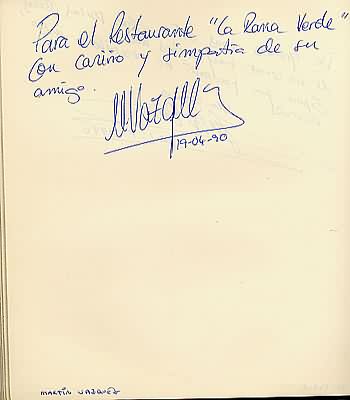 Para el Restaurante "La Rana Verde"
Con cariño y simpatía de su
amigo.
MVazq
19-04-90
MARTÍN VAZQUEZ